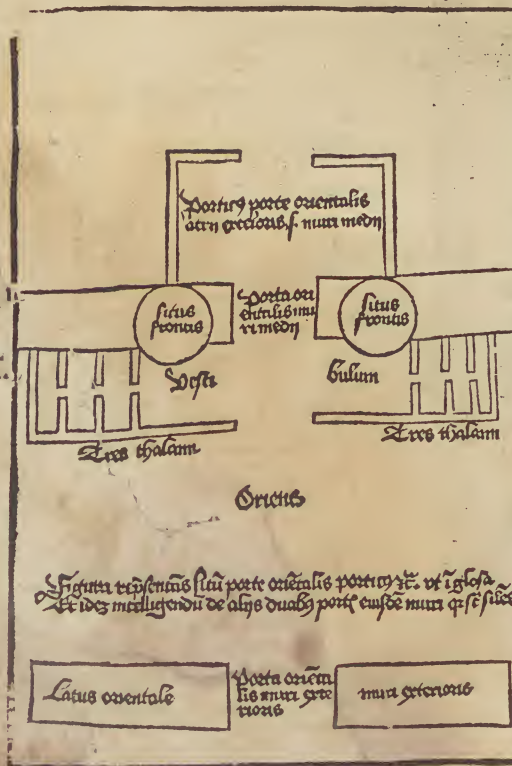 Porticꝰ porte orientalis
atrii exterioris .s. muri medii
situs
frontis
Porta ori
entalis mu
ri medii
situs
frontis
Vesti
bulum
Tres thalami
Tres thalami
Oriens
Figura rep̄sentās sitū porte oriētalis porticꝰ ⁊c̄. vt ī glosa
Et idez intelligendū de aliis duabꝰ port̄ eiusdē muri qꝛ sūt siles
Latus orientale
Porta oriēta
lis muri exte
rioris
muri exterioris